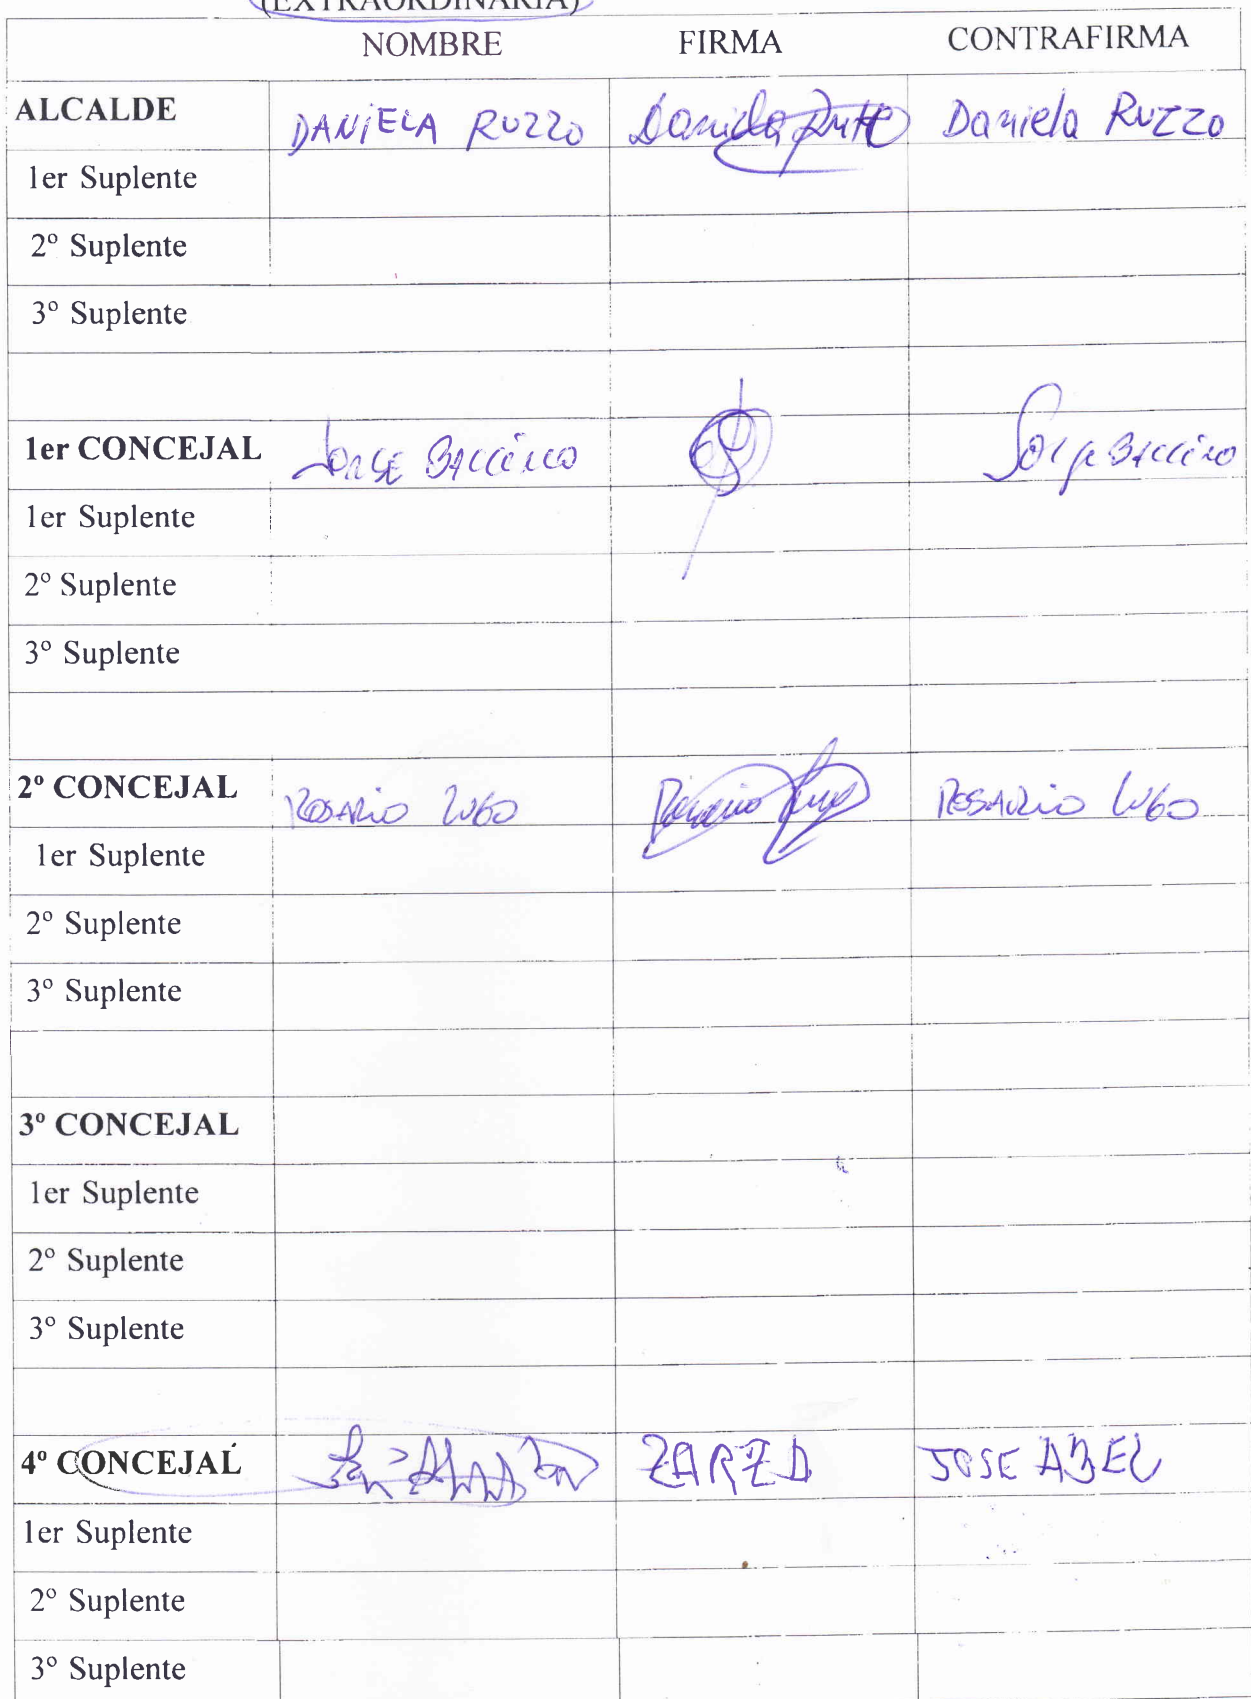 (EXTRAORDINARIA)
NOMBRE FIRMA CONTRAFIRMA
ALCALDE DANiELA RUZZO Daniela Daniela RUZZO
1er Suplente
2º Suplente
3º Suplente
1er CONCEJAL JORGE BACCINO Jorge Baccino
1er Suplente
2º Suplente
3º Suplente
2º CONCEJAL ROSARiO LUGO Rosario Lugo ROSARiO LUGO
1er Suplente
2º Suplente
3º Suplente
3º CONCEJAL
1er Suplente
2º Suplente
3º Suplente
4º CONCEJAL JOSE ABEL
1er Suplente
2º Suplente
3º Suplente